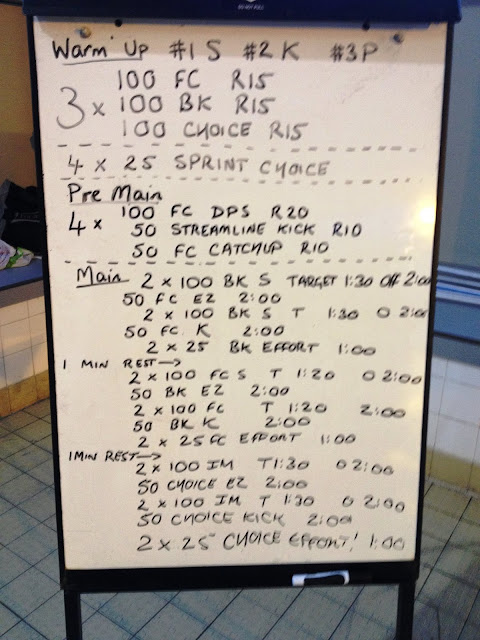 Warm Up #1 S #2 K #3 P
100 FC R15
3 x 100 BK R15
100 CHOICE R15
4 x 25 SPRINT CHOICE
Pre Main
4 x 100 FC DPS R20
50 STREAMLINE KICK R10
50 FC CATCHUP R10
Main 2 x 100 BK S TARGET 1:30 Off 2:00
50 FC EZ 2:00
2 x 100 BK S T 1:30 O 2:00
50 FC K 2:00
2 x 25 BK EFFORT 1:00
1 MIN REST →
2 x 100 FC S T 1:20 O 2:00
50 BK EZ 2:00
2 x 100 FC T 1:20 2:00
50 BK K 2:00
2 x 25 FC EFFORT 1:00
1 MIN REST →
2 x 100 IM T 1:30 O 2:00
50 CHOICE EZ 2:00
2 x 100 IM T 1:30 O 2:00
50 CHOICE KICK 2:00
2 x 25 CHOICE EFFORT! 1:00